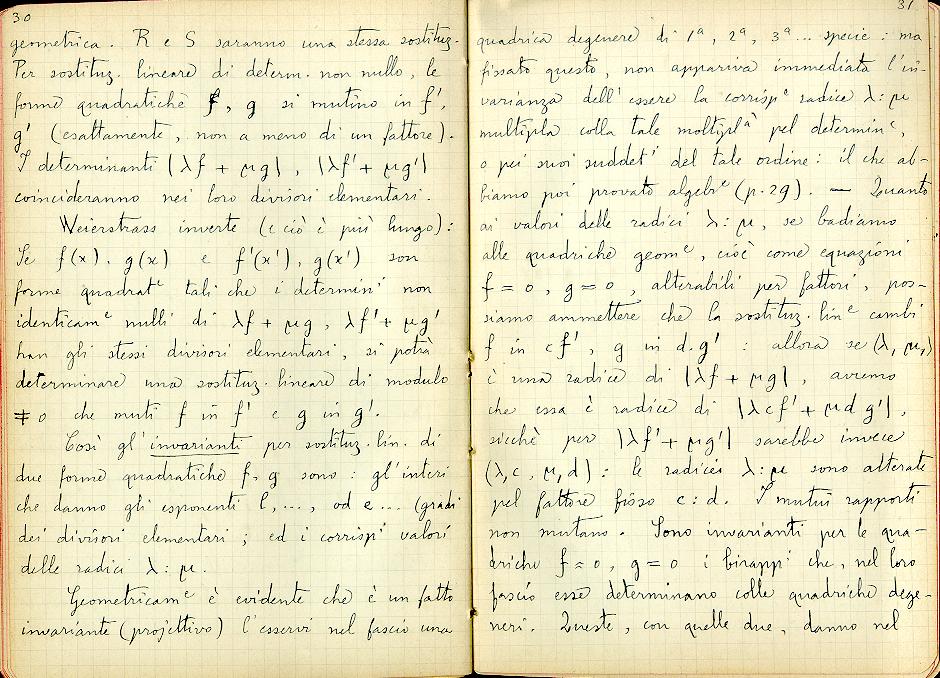 30
geometrica. R e S saranno una stessa sostituz.
Per sostituz. lineare di determ. non nullo, le
forme quadratiche f, g si mutino in f',
g' (esattamente, non a meno di un fattore).
I determinanti |λf + μg|, |λf' + μg'|
coincideranno nei loro divisori elementari.
Weierstrass inverte (e ciò è più lungo):
Se f(x), g(x) e f'(x'), g(x') son
forme quadratᵉ tali che i determinⁱ non
identicamᵉ nulli di λf + μg, λf' + μg'
han gli stessi divisori elementari, si potrà
determinare una sostituz. lineare di modulo
≠ 0 che muti f in f' e g in g'.
Così gl'invarianti per sostituz. lin. di
due forme quadratiche f, g sono: gl'interi
che danno gli esponenti l, ..., od e ... (gradi
dei divisori elementari; ed i corrispⁱ valori
delle radici λ:μ.
Geometricamᵉ è evidente che è un fatto
invariante (projettivo) l'esservi nel fascio una
31
quadrica degenere di 1ª, 2ª, 3ª ... specie: ma
fissato questo, non appariva immediata l'in-
varianza dell'essere la corrispᵉ radice λ:μ
multipla colla tale moltiplᵃ̀ pel determinᵉ,
o pei suoi suddetⁱ del tale ordine: il che ab-
biamo poi provato algebᵉ (p. 29). — Quanto
ai valori delle radici λ:μ, se badiamo
alle quadriche geomᵉ, cioè come equazioni
f = 0, g = 0, alterabili per fattori, pos-
siamo ammettere che la sostituz. linᵉ cambi
f in c f', g in d.g' : allora se (λ, μ,)
è una radice di |λf + μg|, avremo
che essa è radice di |λcf' + μd g'|,
sicchè per |λf' + μg'| sarebbe invece
(λ,c, μ,d): le radici λ:μ sono alterate
pel fattore fisso c:d. I mutui rapporti
non mutano. Sono invarianti per le qua-
driche f = 0, g = 0 i birappⁱ che, nel loro
fascio esse determinano colle quadriche dege-
neri. Queste, con quelle due, danno nel